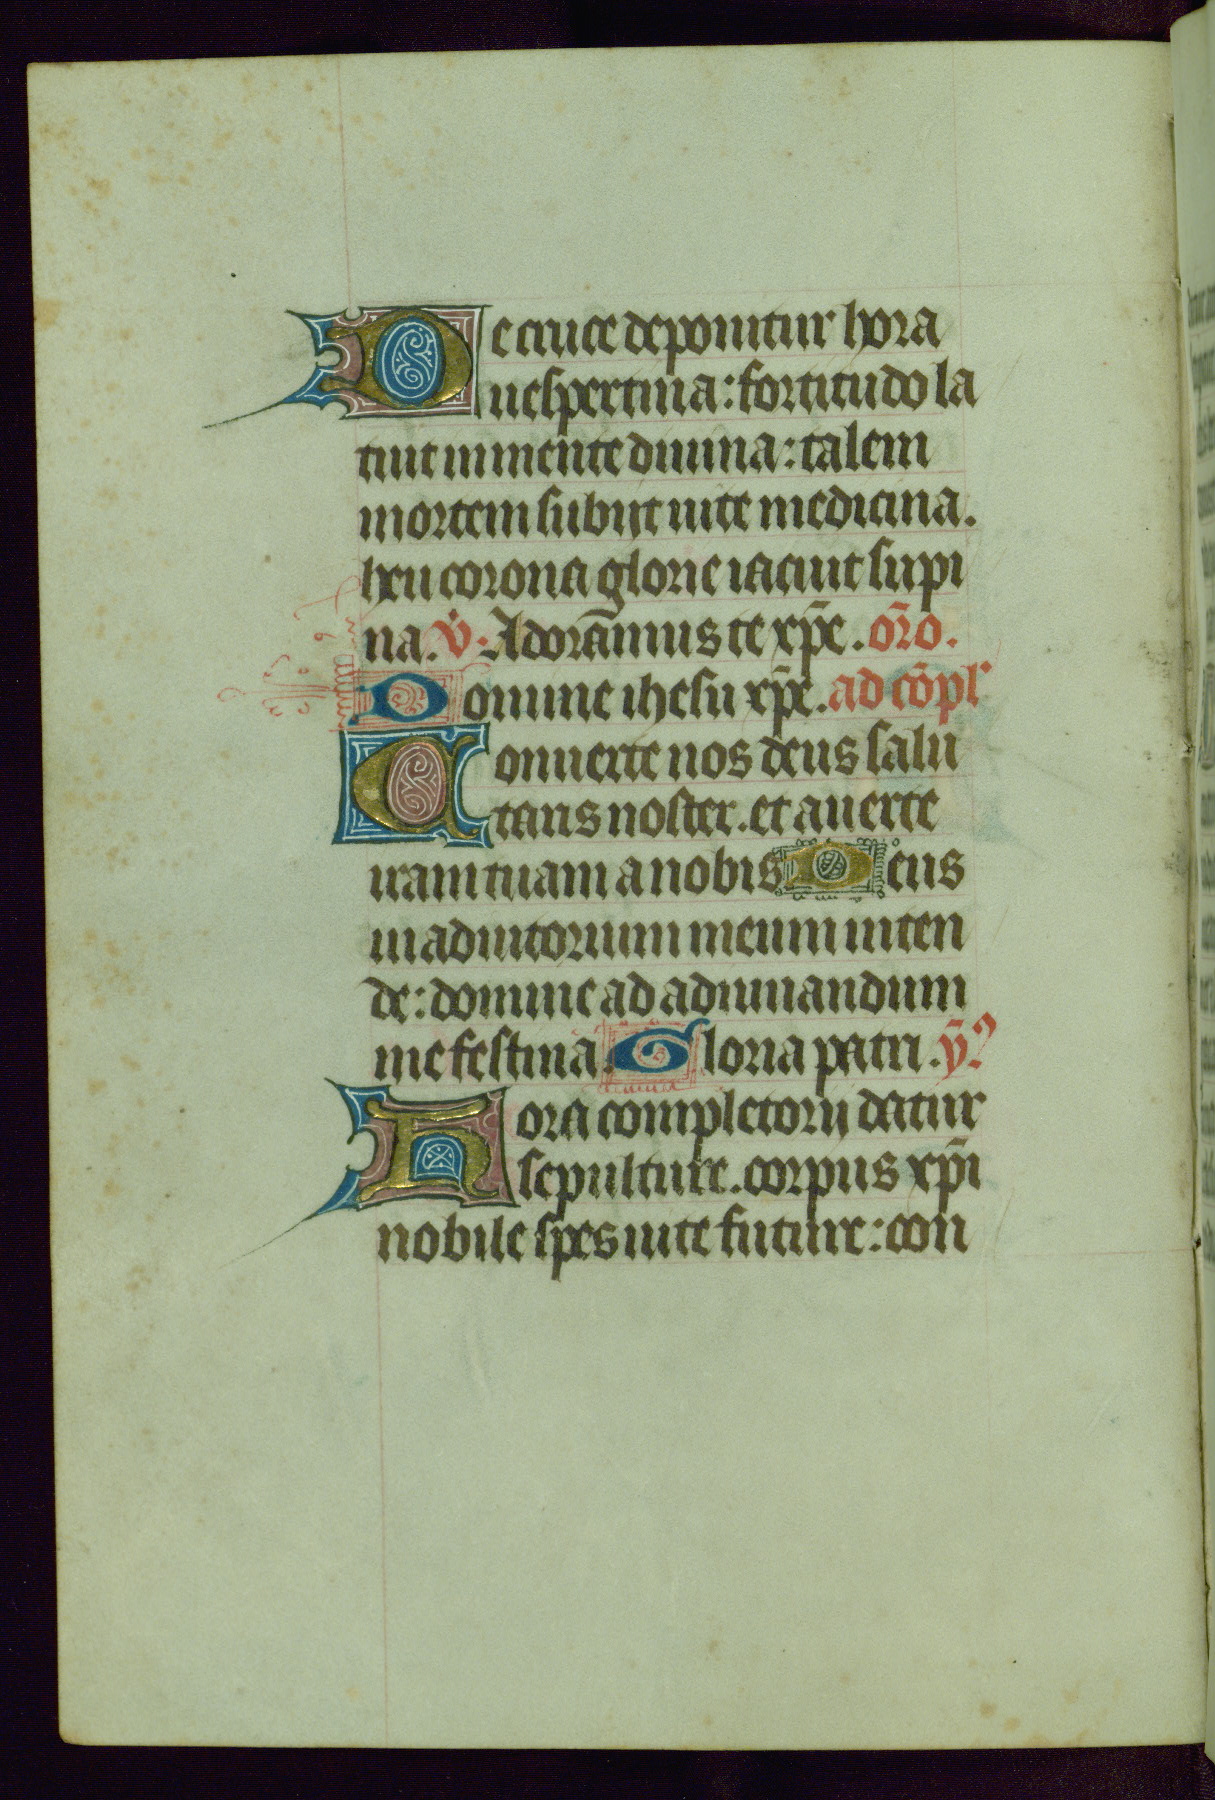 De cruce deponitur hora
uespertina: fortitudo la
tuit in mente diuina: talem
mortem subijt uite medicina.
heu corona glorie iacuit supi
na. v̄. Adorāmus te xp̄e. or̄o.
Domine ihesu xp̄e. ad cōpl'
Conuerte nos deus salu
taris noster. et auerte
iram tuam a nobis Deus
in adiutorium meum inten
de: domine ad adiuuandum
me festina. Gloria patri. ȳ?
Hora completorij datur
sepulture. corpus xp̄i
nobile spes uite future: con